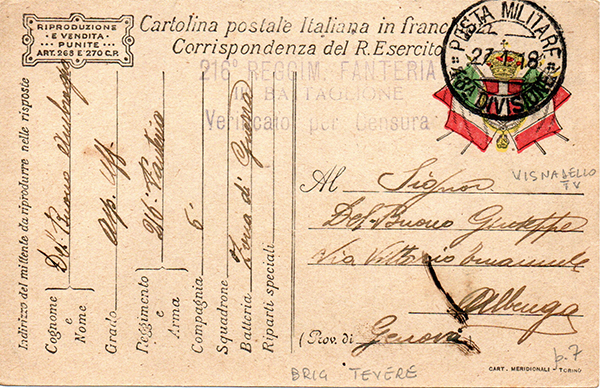 RIPRODUZIONE
E VENDITA
PUNITE
ART. 268 E 270 C.P.
Cartolina postale Italiana in franc
Corrispondenza del R. Esercito
216° REGGIM. FANTERIA
BATTAGLIONE
Verificato per Censura
POSTA MILITARE
27. 18
DIVISIONE
VISNADELLO
TV
Indirizzo del mittente da riprodurre nelle risposte
Cognome e Nome Del Buono
Grado Asp. Uff.
Reggimento e Arma 216° Fanteria
Compagnia 6
Squadrone o Batteria Zona di Guerra
Riparti speciali
Al Signor
Del-Buono Giuseppe
Via Vittorio Emanuele
Albenga
(Prov. di Genova
BRIG TEVERE
p.7
CART. MERIDIONALI - TORINO